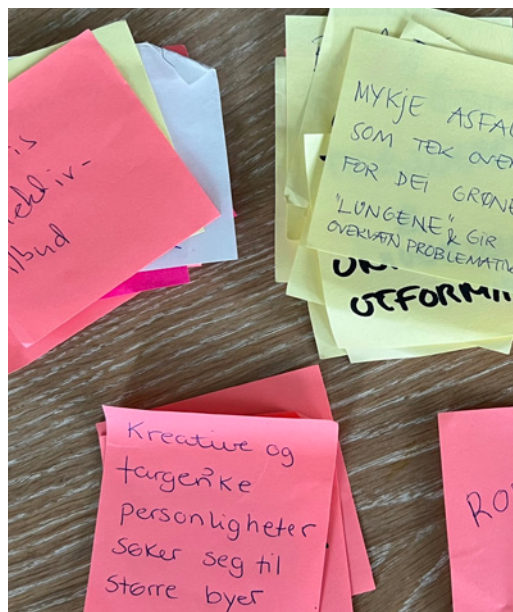 is
ektiv-
lbud
MYKJE ASFAL
SOM TEK OVER
FOR DEI GRØNE
"LUNGENE" & GIR
OVERVATN PROBLEMATIK
UTFORMI
Kreative og
fargerike
personligheter
søker seg til
større byer
RO